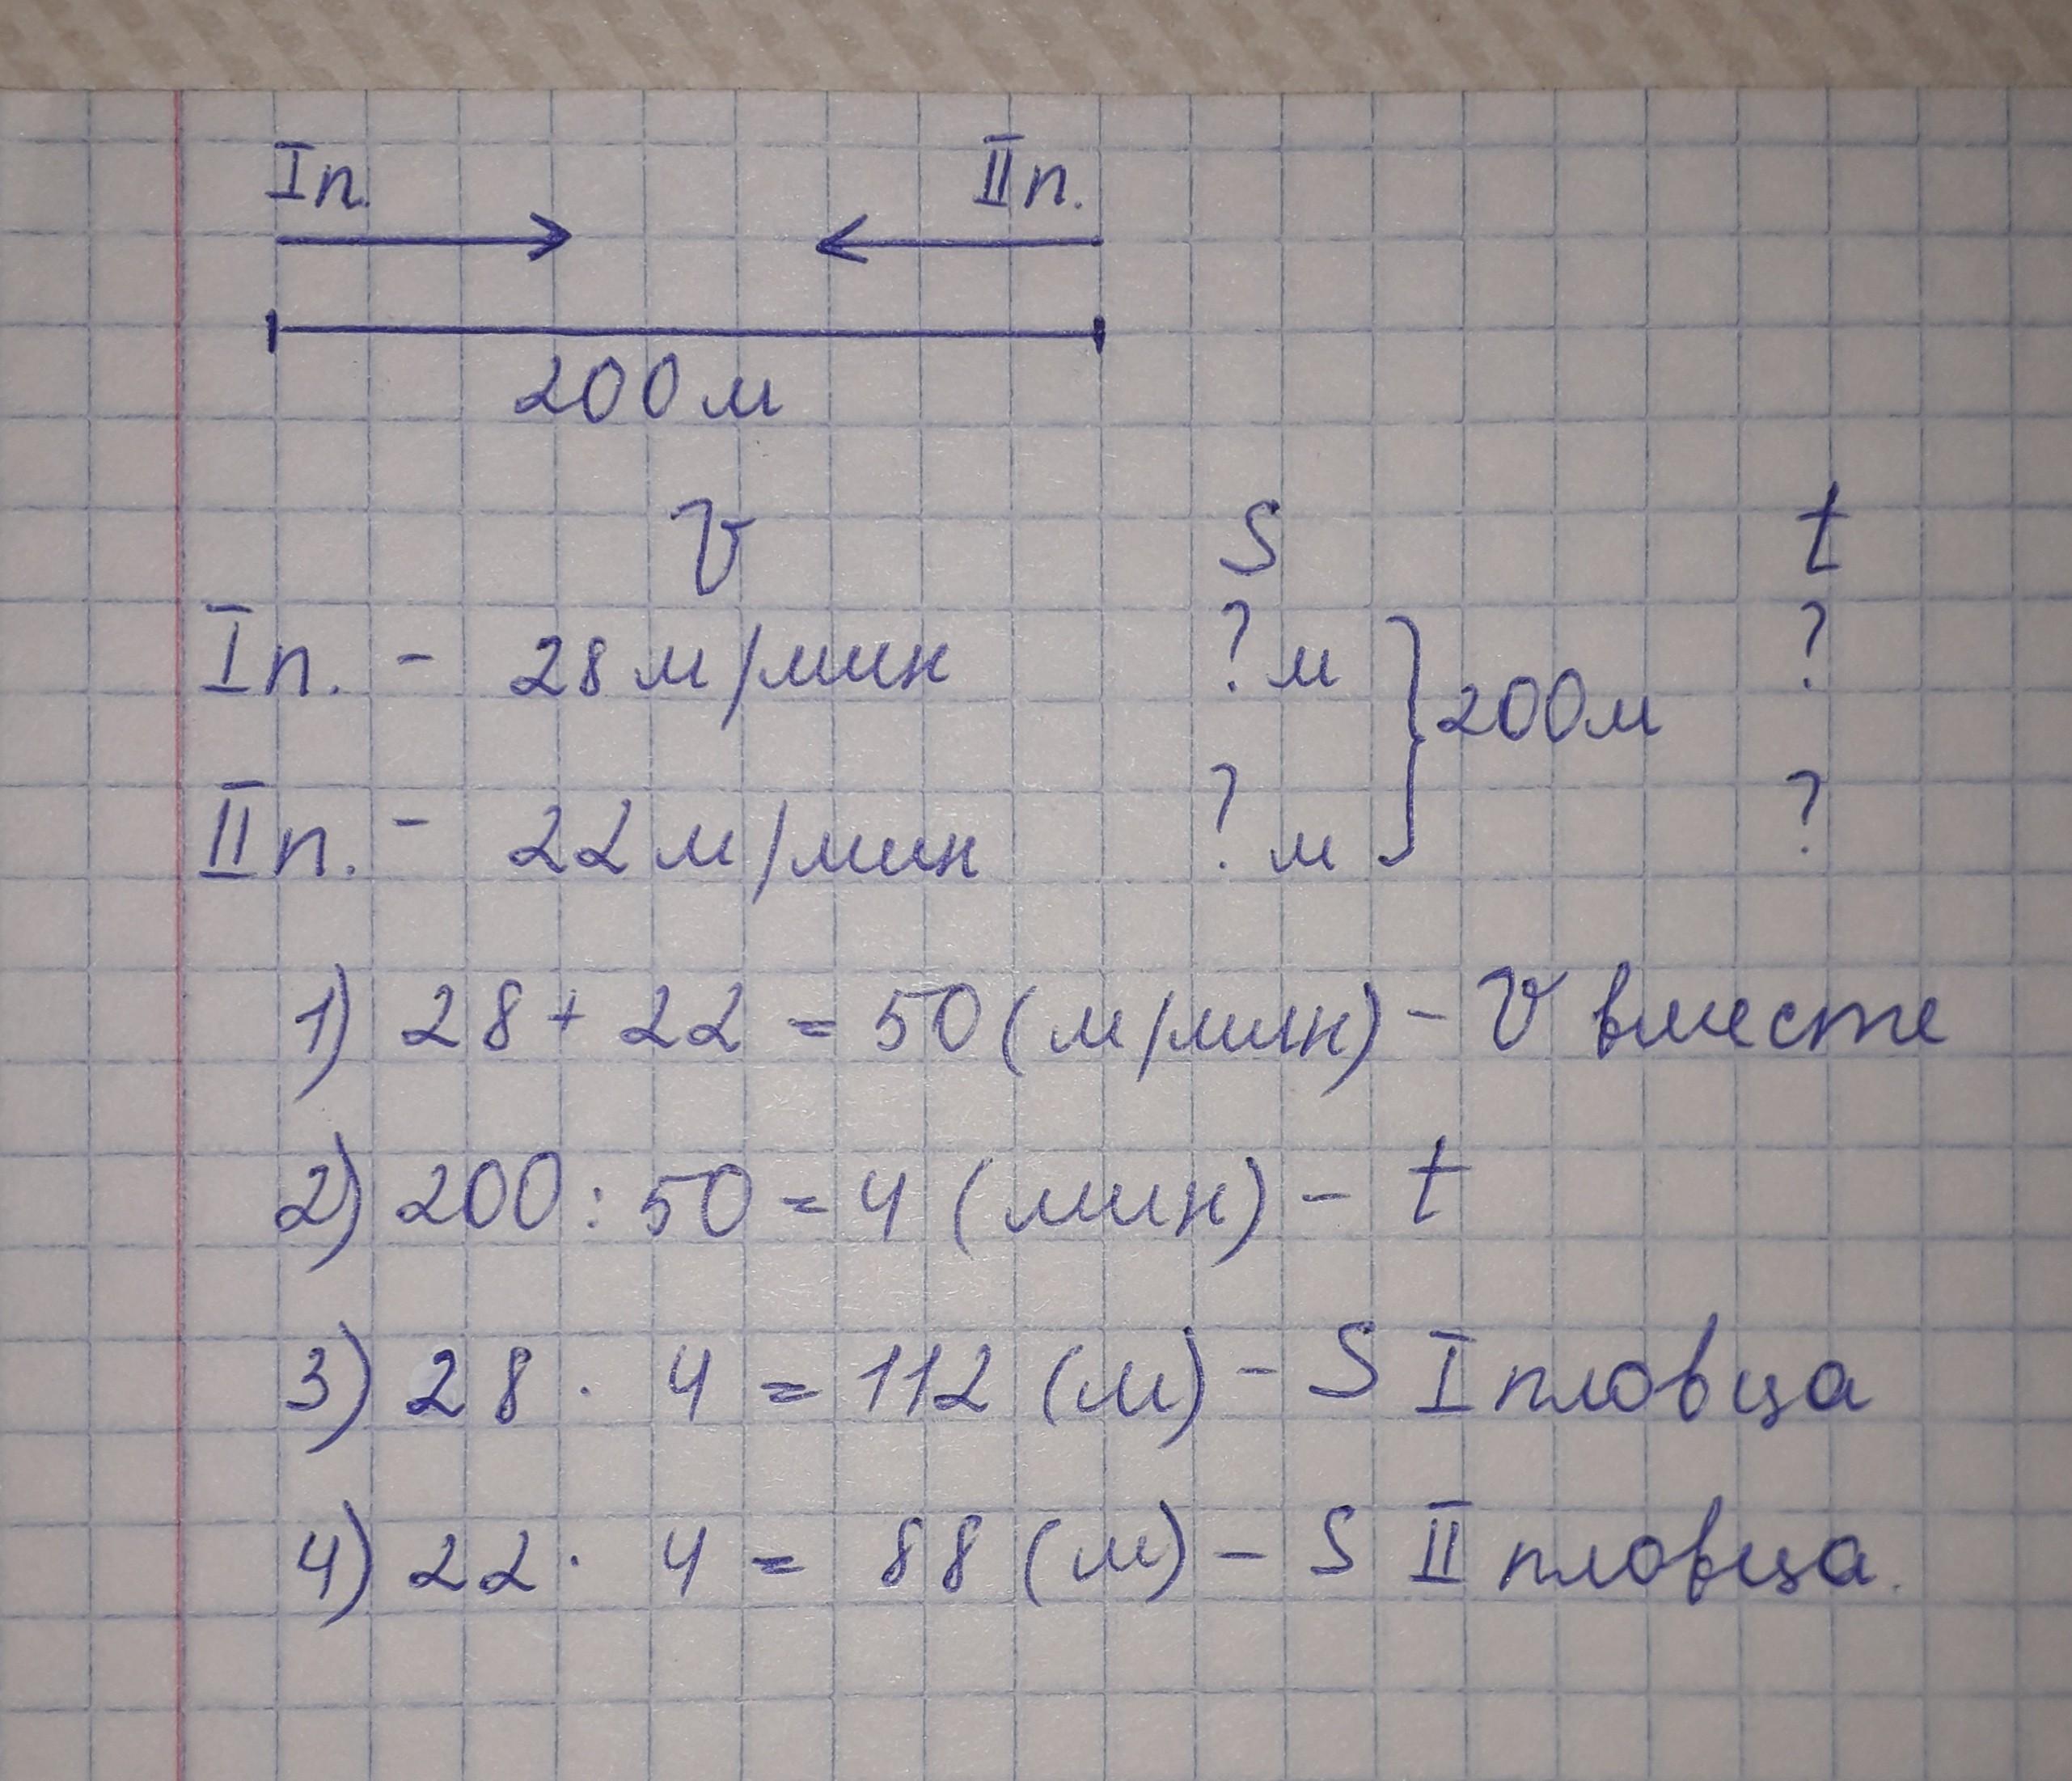 I п. II п.
200 м
v s t
I п. - 28 м/мин ? м ?
200 м
II п. - 22 м/мин ? м ?
1) 28 + 22 = 50 (м/мин) - v вместе
2) 200 : 50 = 4 (мин) - t
3) 28 · 4 = 112 (м) - S I пловца
4) 22 · 4 = 88 (м) - S II пловца.